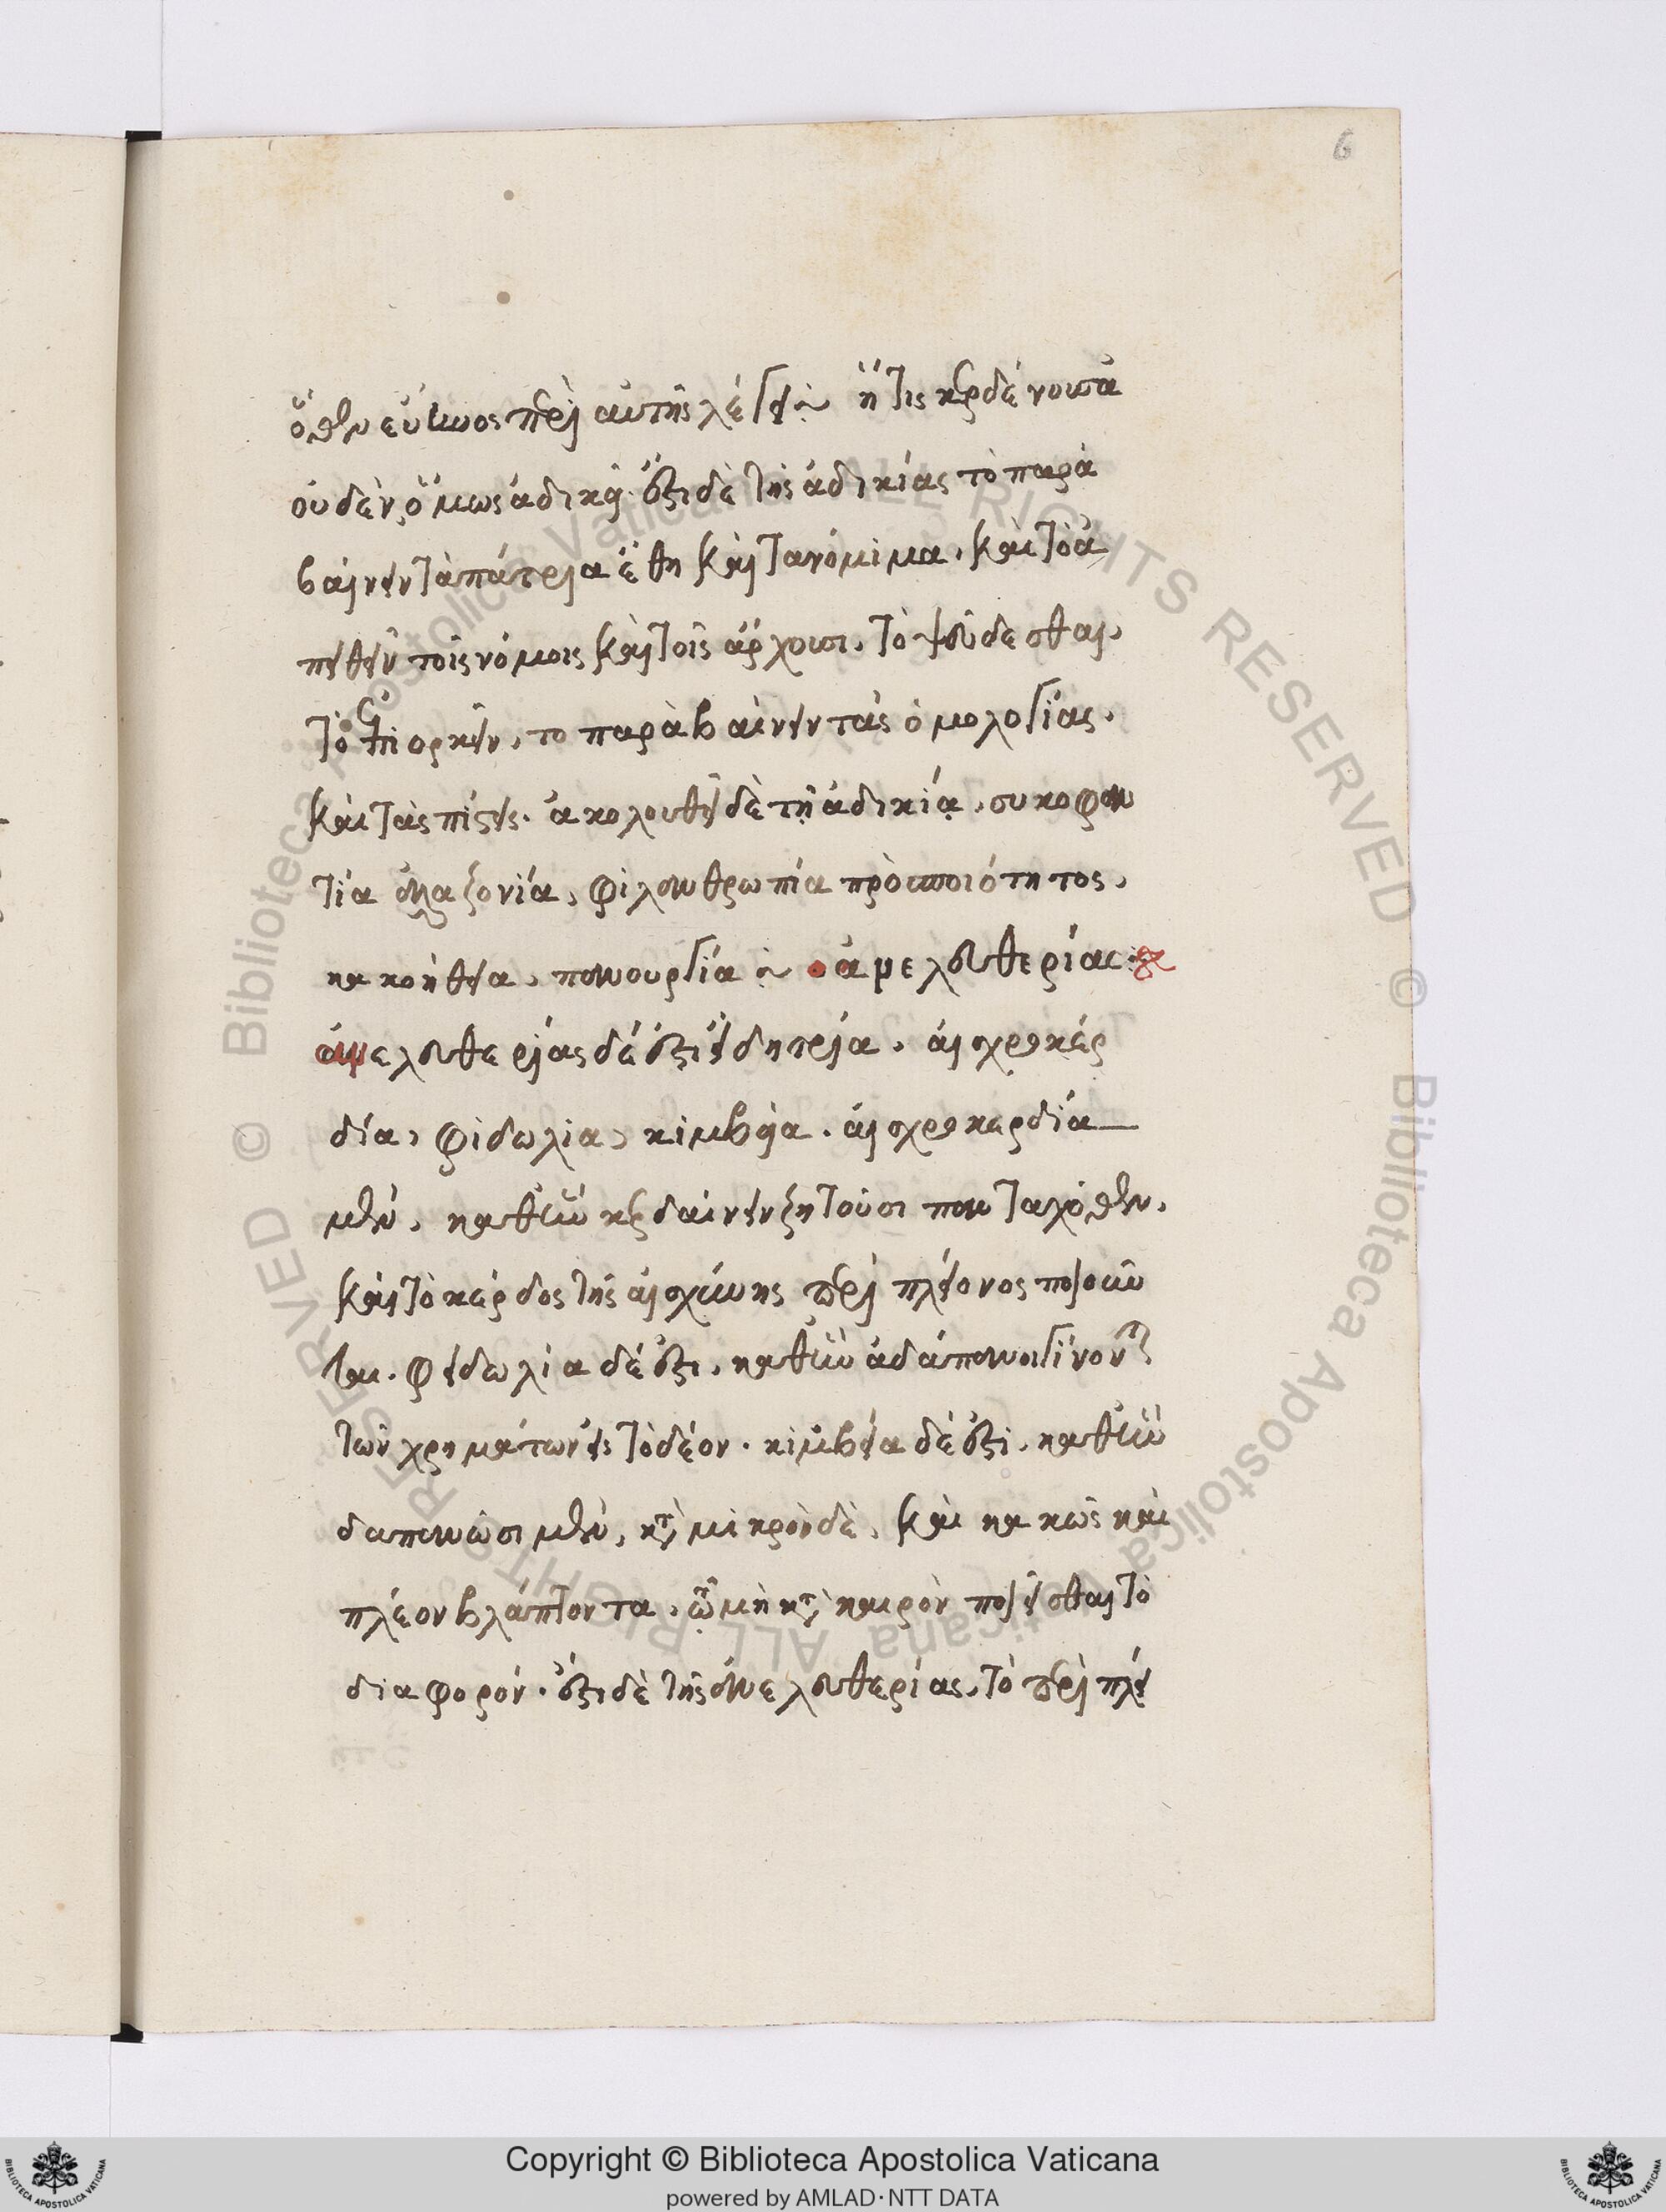 6
ὅθεν εὔηνος περὶ αὐτῆς λέγει ἥτις κερδένουσα
οὐδὲν, ὅμως ἀδικεῖ. ἔστι δὲ τῆς ἀδικίας τὸ παρα
βαίνειν τὰ πάτρια ἔθη καὶ τὰ νόμιμα, καὶ τὸ ἀ
πειθεῖν τοῖς νόμοις καὶ τοῖς ἄρχουσι, τὸ ψεύδεσθαι,
τὸ ἐπιορκεῖν, το παραβαίνειν τὰς ὁμολογίας.
καὶ τὰς πίστεις. ἀκολουθεῖ δὲ τῇ ἀδικίᾳ, συκοφαν
τία ἀλαζονία, φιλανθρωπία προσποιότητος,
κακοήθεια, πανουργία ἀνελευθερίας
ἀνελευθερίας δέ ἐστι εἴδη τρία. αἰσχροκέρ
δία, φιδωλία, κιμβεία. αἰσχροκερδία
μὲν, καθ' ἣν κερδαίνειν ζητοῦσι πανταχόθεν,
καὶ τὸ κέρδος τῆς αἰσχύνης περὶ πλείονος ποιοῦν
ται. φειδωλία δέ ἐστι, καθ' ἣν ἀδάπανοι γίνονται
τῶν χρημάτων εἰς τὸ δέον. κιμβεία δέ ἐστι, καθ' ἣν
δαπανῶσι μὲν, κατὰ μικρὸν δὲ, καὶ κακῶς καὶ
πλέον βλάπτονται, τῷ μὴ κατὰ καιρὸν ποιεῖσθαι τὸ
διαφορόν. ἔστι δὲ τῆς ἀνελευθερίας, τὸ περὶ πλεί
Biblioteca Apostolica Vaticana ALL RIGHTS RESERVED © Biblioteca Apostolica Vaticana ALL RIGHTS RESERVED ©
Copyright © Biblioteca Apostolica Vaticana
powered by AMLAD·NTT DATA
BIBLIOTECA APOSTOLICA VATICANA
BIBLIOTECA APOSTOLICA VATICANA